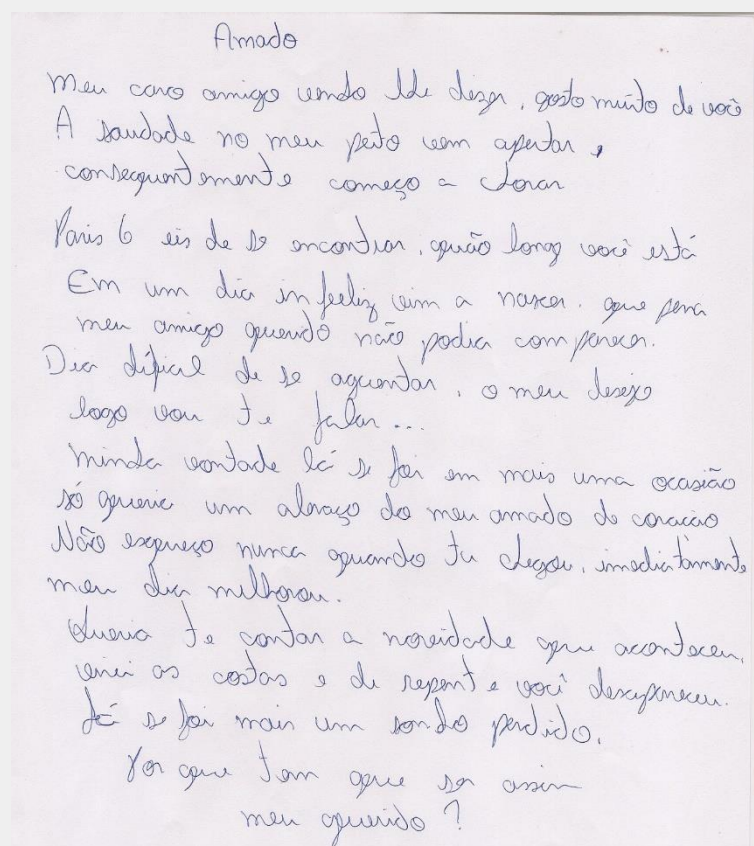 Amado
Meu caro amigo venho lhe dizer, gosto muito de você
A saudade no meu peito vem apertar,
consequentemente começo a chorar
Paris 6 eis de se encontrar, quão long você está
Em um dia infeeliz vim a nascer. que pena
meu amigo querido não podia comparecer.
Dia difícil de se aguentar, o meu desejo
logo vou te falar...
Minha vontade lá se foi em mais uma ocasião
só queria um abraço do meu amado do coração
Não esqueço nunca quando tu chegou, imediatamente
meu dia milhorou.
Queria te contar a noveidade que aconteceu,
virei as costas e de repente você desapareceu.
Lá se foi mais um sonho perdido.
Por que tem que ser assim
meu querido?